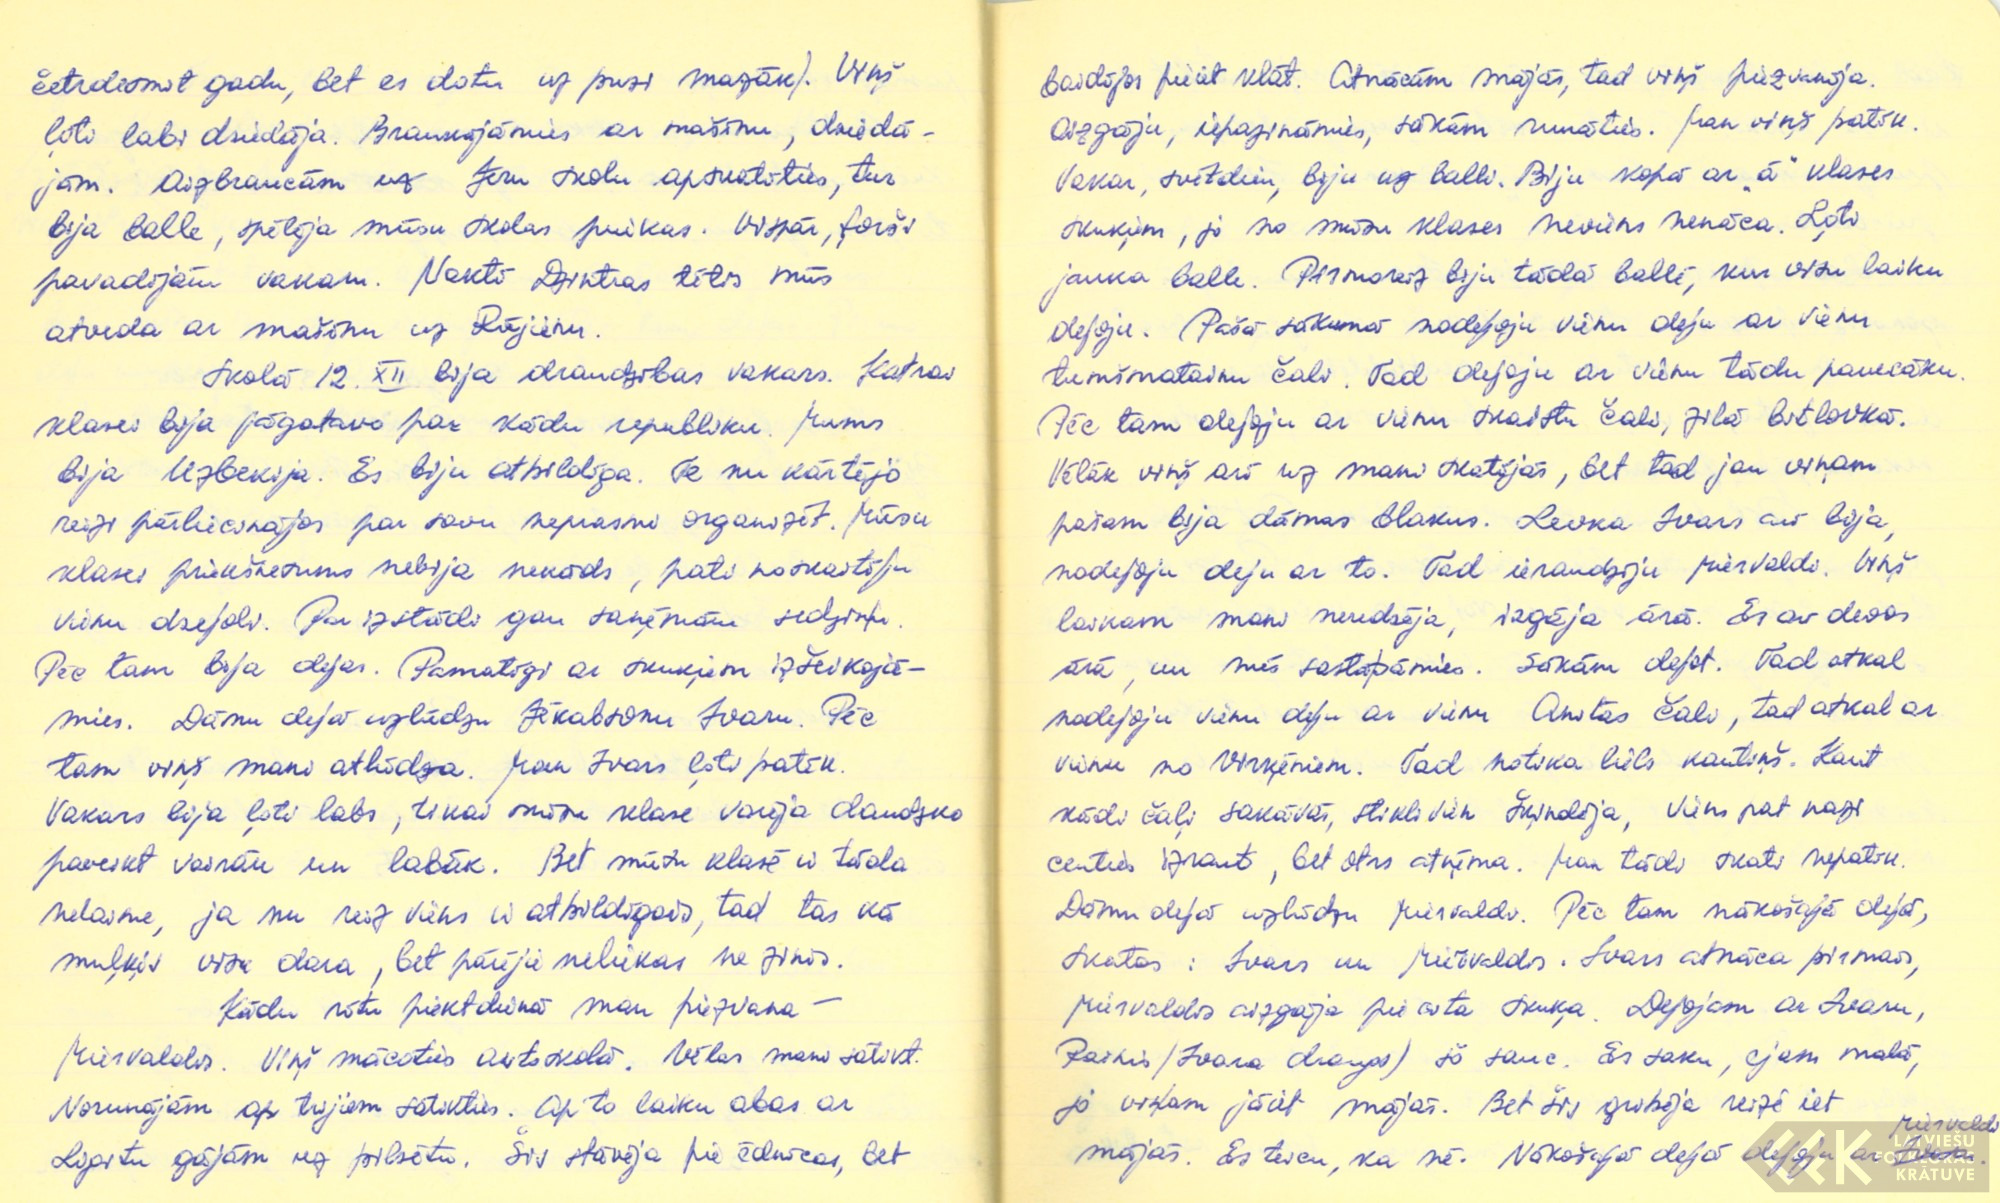 četrdesmit gadu, bet es dotu uz pusi mazāk). Viņš
ļoti labi dziedāja. Braukājāmies ar mašīnu, dziedā-
jām. Aizbraucām uz Jeru skolu apskatīties, tur
bija balle, spēlēja mūsu skolas puikas. Vispār, forši
pavadījām vakaru. Naktī Dzintras tētis mūs
atveda ar mašīnu uz Rūjienu.
Skolā 12. XII bija draudzības vakars. Katrai
klasei bija jāgatavo par kādu republiku. Mums
bija Uzbekija. Es biju atbildīga. Te nu kārtējo
reizi pārliecinājos par savu neprasmi organizēt. Mūsu
klasei priekšnesums nebija nekāds, pati noskaitīju
vienu dzejoli. Par izstādi gan saņēmām
Pēc tam bija dejas. Pamatīgi ar skuķiem izšeikojā-
mies. Dāmu dejā uzlūdzu Jēkabsonu Ivaru. Pēc
tam viņš mani atlūdza. Man Ivars ļoti patīk.
Vakars bija ļoti labs, tikai mūsu klase varēja daudzko
paveikt vairāk un labāk. Bet mūsu klasē ir tāda
nelaime, ja nu reiz viens ir atbildīgais, tad tas kā
muļķis visu dara, bet pārējie neliekas ne zinis.
Kādu rītu piektdienā man piezvana –
Miervaldis. Viņš mācoties autoskolā. Vēlas mani satikt.
Norunājām ap trijiem satikties. Ap to laiku abas ar
Ligitu gājām uz pilsētu. Šis stāvēja pie ēdnīcas, bet
baidījos pieiet klāt. Atnācām mājās, tad viņš piezvanīja.
Aizgāju, iepazināmies, sākām runāties. Man viņš patīk.
Vakar, svētdien, biju uz balli. Biju kopā ar „a" klases
skuķiem, jo no mūsu klases neviens nenāca. Ļoti
jauka balle. Pirmoreiz biju tādā ballē, kur visu laiku
dejoju. Pašā sākumā nodejoju vienu deju ar vienu
tumšmatainu čali. Tad dejoju ar vienu tādu pavecāku.
Pēc tam dejoju ar vienu skaistu čali, zilā bitlovkā.
Vēlāk viņš arī uz mani skatījās, bet tad jau viņam
pašam bija dāmas blakus. Levka Ivars arī bija,
nodejoju deju ar to. Tad ieraudzīju Miervaldi. Viņš
laikam mani neredzēja, izgāja ārā. Es arī devos
ārā, un mēs sastapāmies. Sākām dejot. Tad atkal
nodejoju vienu deju ar vienu Anitas čali, tad atkal ar
vienu no Virķēniem. Tad notika liels kautiņš. Kaut
kādi čaļi sakāvās, stikli vien šķindēja, viens pat nazi
centās izraut, bet otrs atņēma. Man tādi skati nepatīk.
Dāmu dejā uzlūdzu Miervaldi. Pēc tam nākošajā dejā,
skatos: Ivars un Miervaldis. Ivars atnāca pirmais,
Miervaldis aizgāja pie cita skuķa. Dejojam ar Ivaru,
Rainis (Ivara draugs) šo sauc. Es saku, ejam malā,
jo viņam jāiet mājās. Bet šis gribēja reizē iet
mājās. Es teicu, ka nē. Nākošajā dejā dejoju ar Miervaldi.
LATVIEŠU
FOLKLORAS
KRĀTUVE